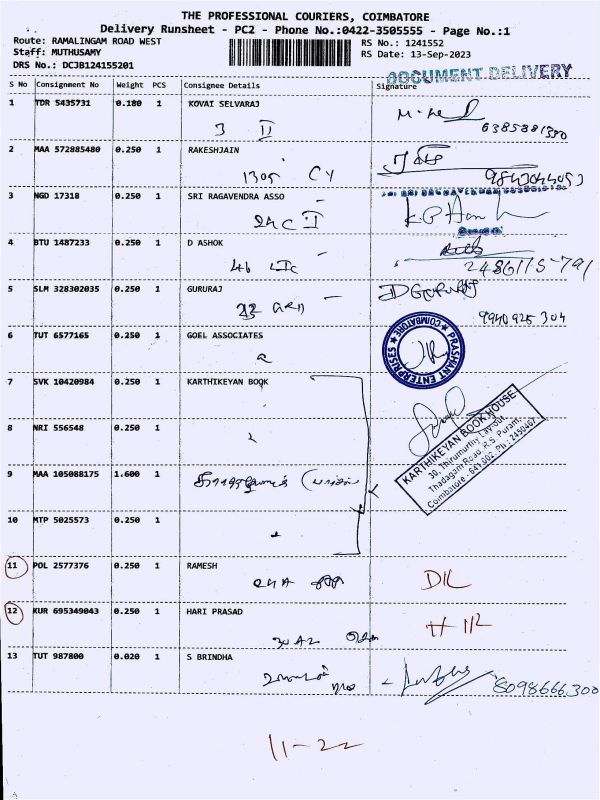 THE PROFESSIONAL COURIERS, COIMBATORE
Delivery Runsheet - PC2 - Phone No.:0422-3505555 - Page No.:1
Route: RAMALINGAM ROAD WEST
Staff: MUTHUSAMY
DRS No.: DCJB124155201
RS No.: 1241552
RS Date: 13-Sep-2023
DOCUMENT DELIVERY
S No Consignment No Weight PCS Consignee Details Signature
1 TDR 5435731 0.180 1 KOVAI SELVARAJ
3 II
6385881380
2 MAA 572885480 0.250 1 RAKESHJAIN
1305 CY
9843044053
3 NGD 17318 0.250 1 SRI RAGAVENDRA ASSO
24C II
4 BTU 1487233 0.250 1 D ASHOK
46 LIC
2486115-791
5 SLM 328302035 0.250 1 GURURAJ
D GURURAJ
22
9940925304
6 TUT 6577165 0.250 1 GOEL ASSOCIATES
PRASHANT ENTERPRISES
COIMBATORE
7 SVK 10420984 0.250 1 KARTHIKEYAN BOOK
8 NRI 556548 0.250 1
KARTHIKEYAN BOOK HOUSE
30, Thirumurthy Layout,
Thadagam Road, R.S. Puram,
Coimbatore - 641 002. Ph : 2450467
9 MAA 105088175 1.600 1
10 MTP 5025573 0.250 1
11 POL 2577376 0.250 1 RAMESH
24A
D/L
12 KUR 695349043 0.250 1 HARI PRASAD
30 A2
13 TUT 987800 0.020 1 S BRINDHA
8098666300
11-22